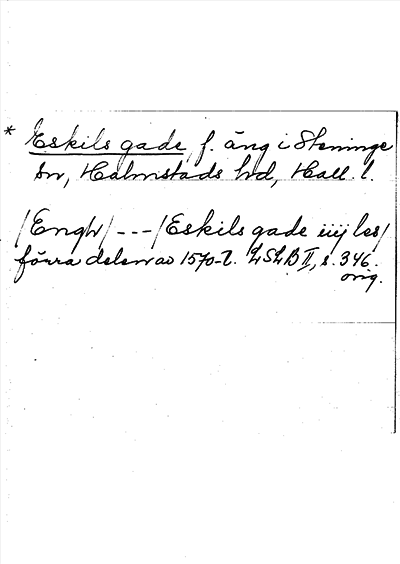 * Eskils gade, f. äng i Steninge
sn, Halmstads hd, Hall. l.
/Engh/ --- /Eskils gade iiij les/
förra delen av 1570-t. LSLB II, s. 346.
orig.